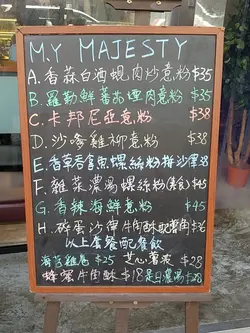 MY MAJESTY
A. 香蒜白酒蜆肉炒意粉 $35
B. 羅勒鮮蕃茄煙肉意粉 $35
C. 卡邦尼亞意粉 $38
D. 沙嗲雞柳意粉 $38
E. 香草吞拿魚螺絲粉拼沙律 38
F. 雜菜濃湯螺絲粉(素食) $45
G. 香辣海鮮意粉 $45
H. 碎蛋沙律牛角酥配薯角 $36
以上套餐配餐飲
$25 芝心薯衣 $28
蜂蜜牛角酥 $18 是日濃湯 $28